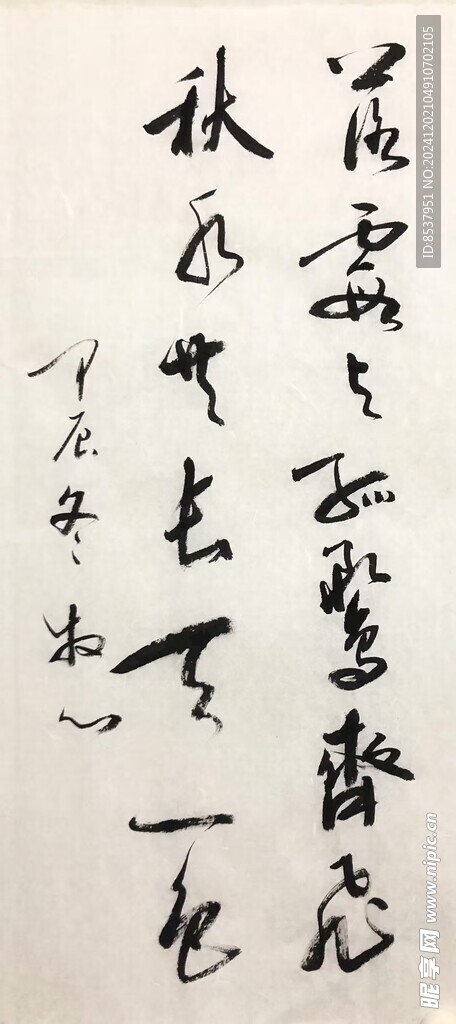 落霞与孤鹜齊飛
秋水共長天一色
甲辰冬牧心
ID:8537951 NO:20241202104910702105
昵享网 www.nipic.cn